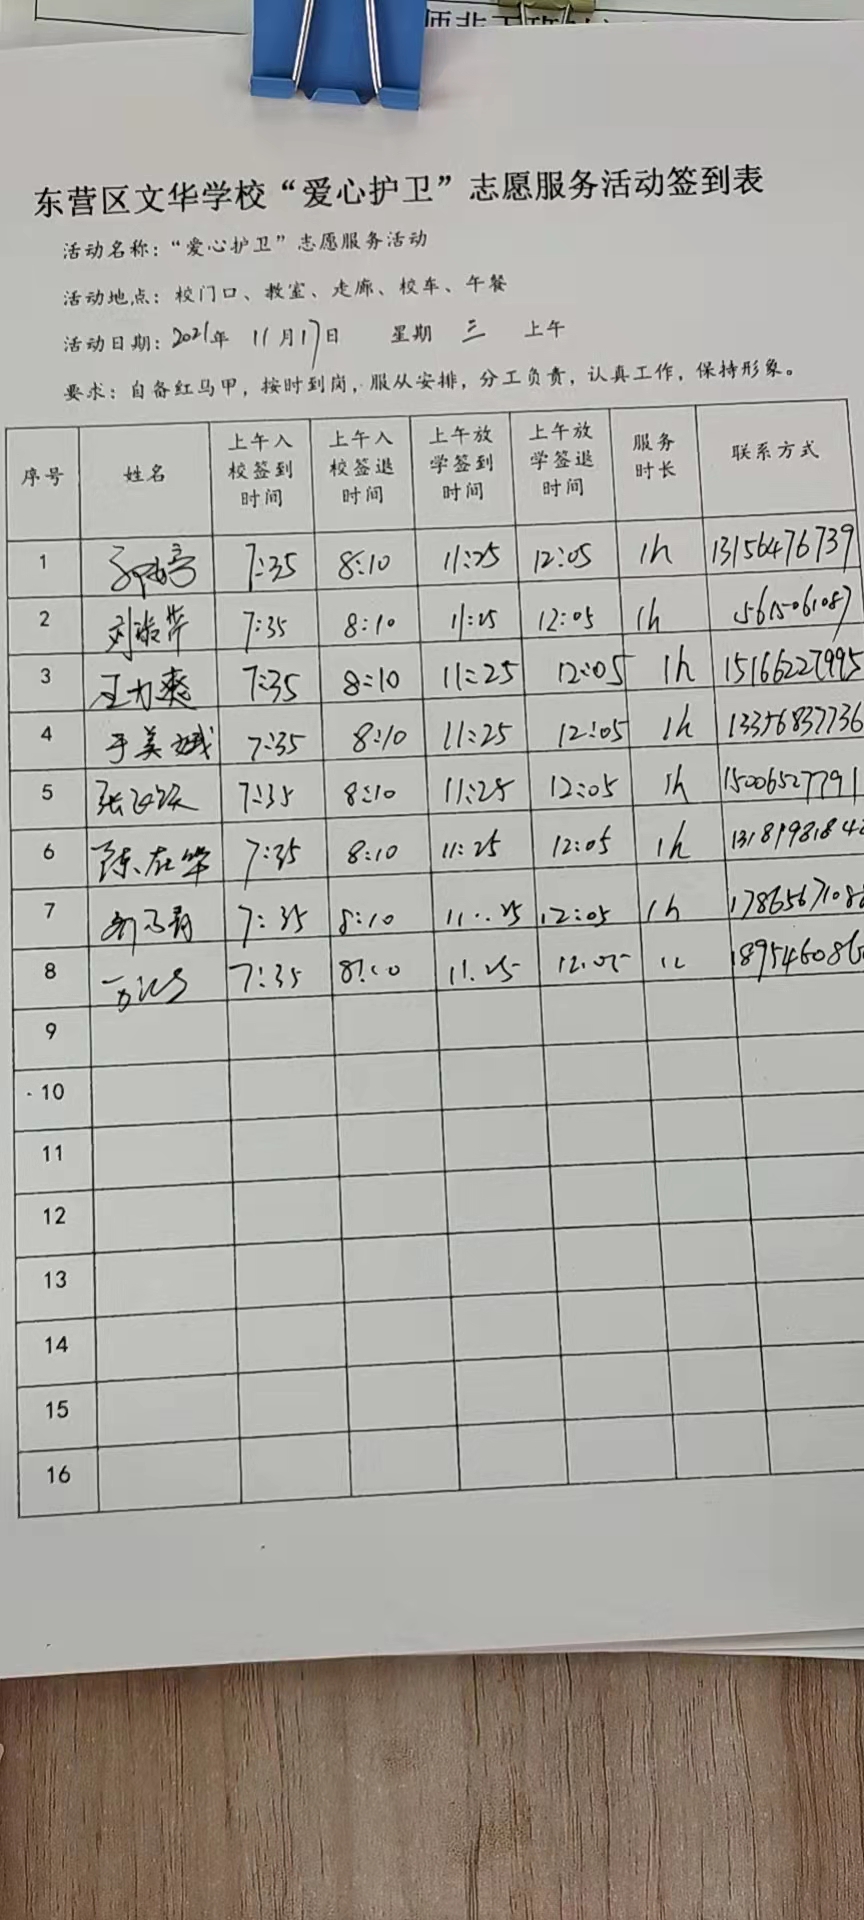 东营区文华学校“爱心护卫”志愿服务活动签到表
活动名称：“爱心护卫”志愿服务活动
活动地点：校门口、教室、走廊、校车、午餐
活动日期：2021年 11月17日 星期 三 上午
要求：自备红马甲，按时到岗，服从安排，分工负责，认真工作，保持形象。
序号 姓名 上午入校签到时间 上午入校签退时间 上午放学签到时间 上午放学签退时间 服务时长 联系方式
1 7:35 8:10 11:25 12:05 1h 13156476739
2 7:35 8:10 11:25 12:05 1h
3 王力爽 7:35 8:10 11:25 12:05 1h 15166227995
4 于美娥 7:35 8:10 11:25 12:05 1h 13356837736
5 7:35 8:10 11:25 12:05 1h 15006527791
6 陈在华 7:35 8:10 11:25 12:05 1h
7 7:35 8:10 11:25 12:05 1h
8 7:35 8:10 11:25 12:05
9
10
11
12
13
14
15
16